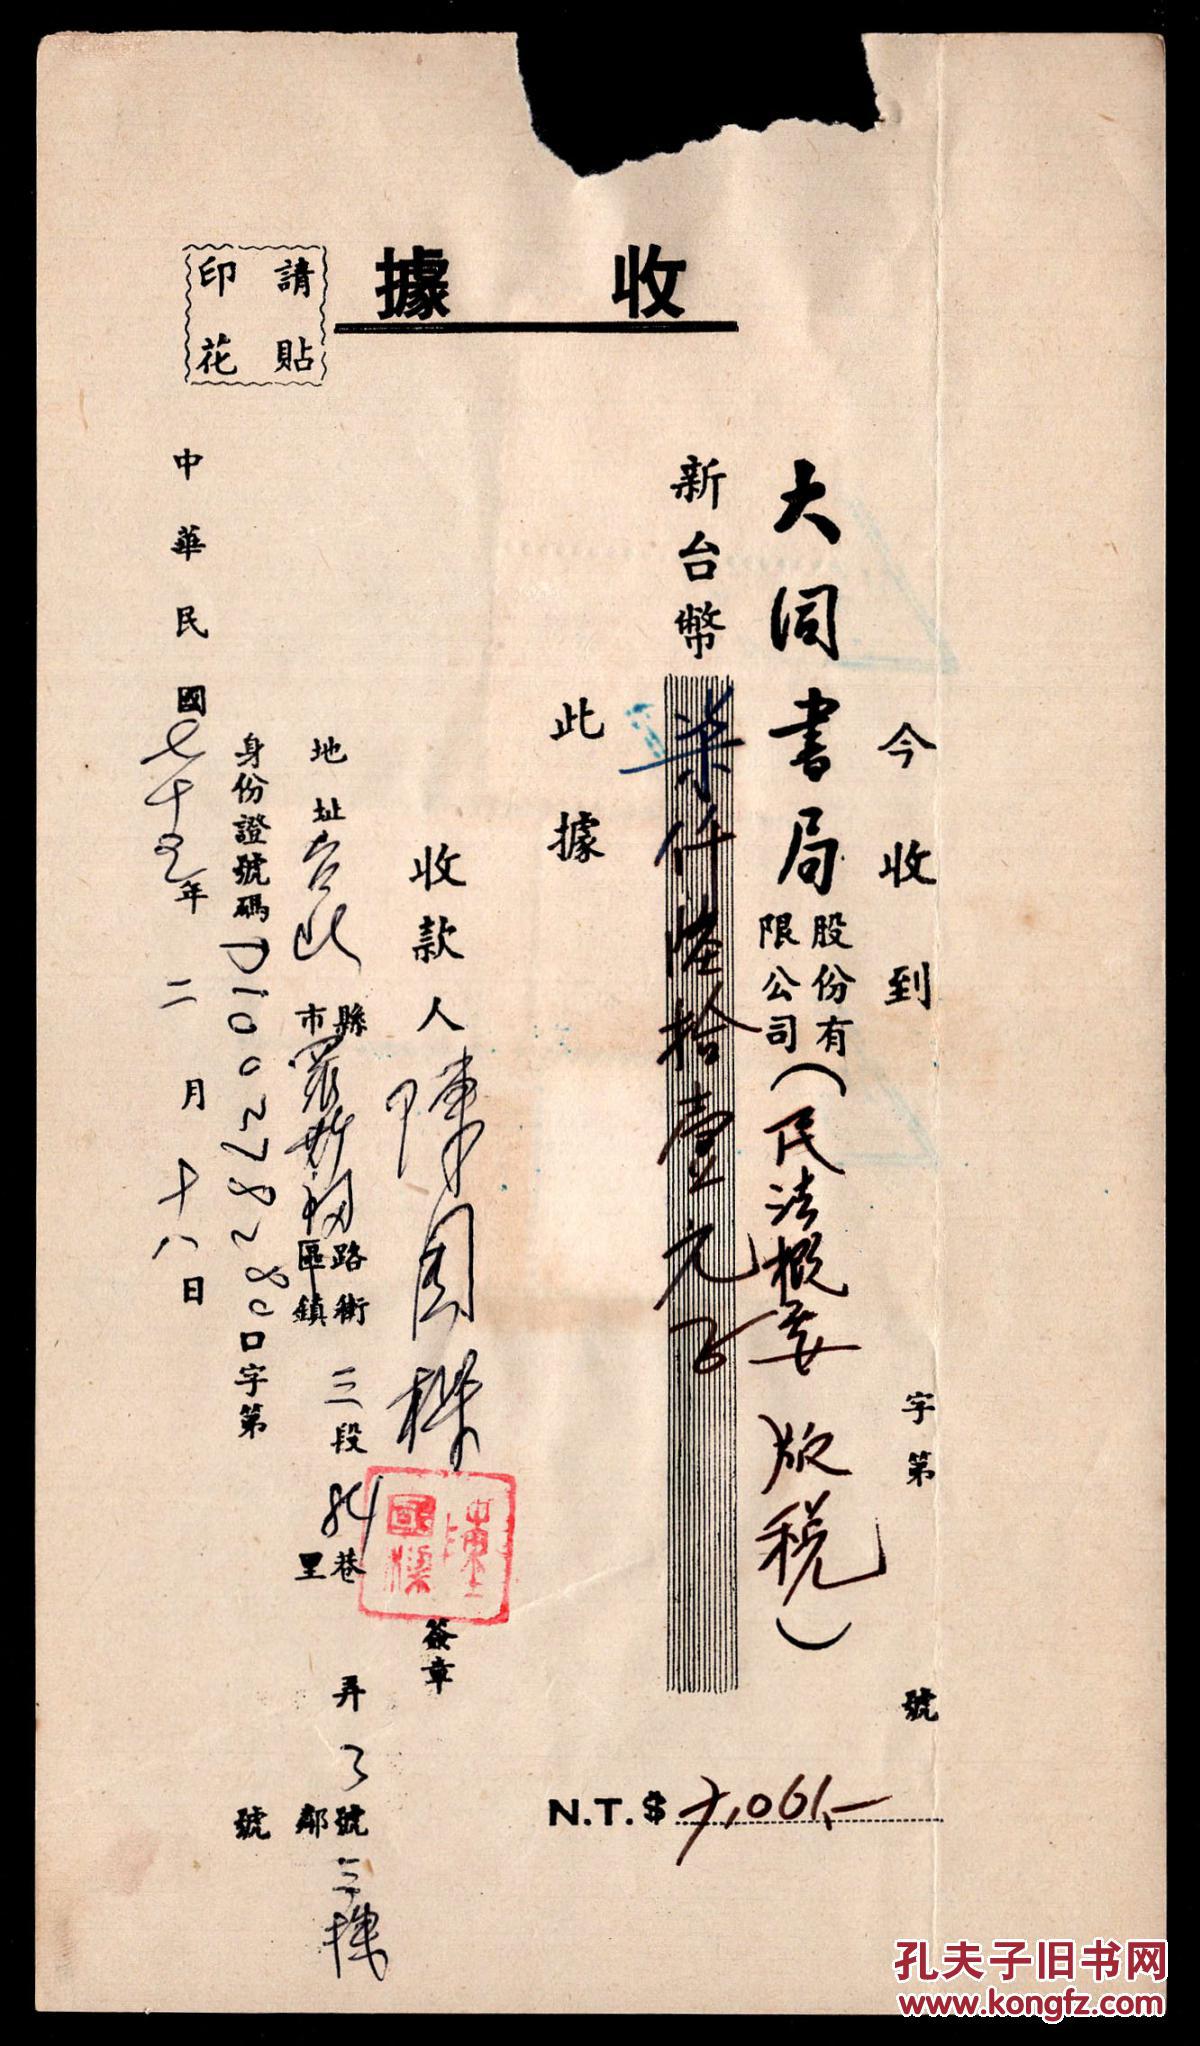 收據
請貼
印花
字第 號
今收到
大同書局股份有限公司(民法概要 版税)
新台幣柒仟陸拾壹元正
N.T.$ 7,061.—
此據
收款人 陳國樑 簽章
陳國樑
地址台北 縣市 羅斯福 路街區鎮 三段 84 巷里 弄 3 號鄰 三樓
身份證號碼 P100278280 口字第 號
中華民國七十五年二月十八日
孔夫子旧书网
www.kongfz.com